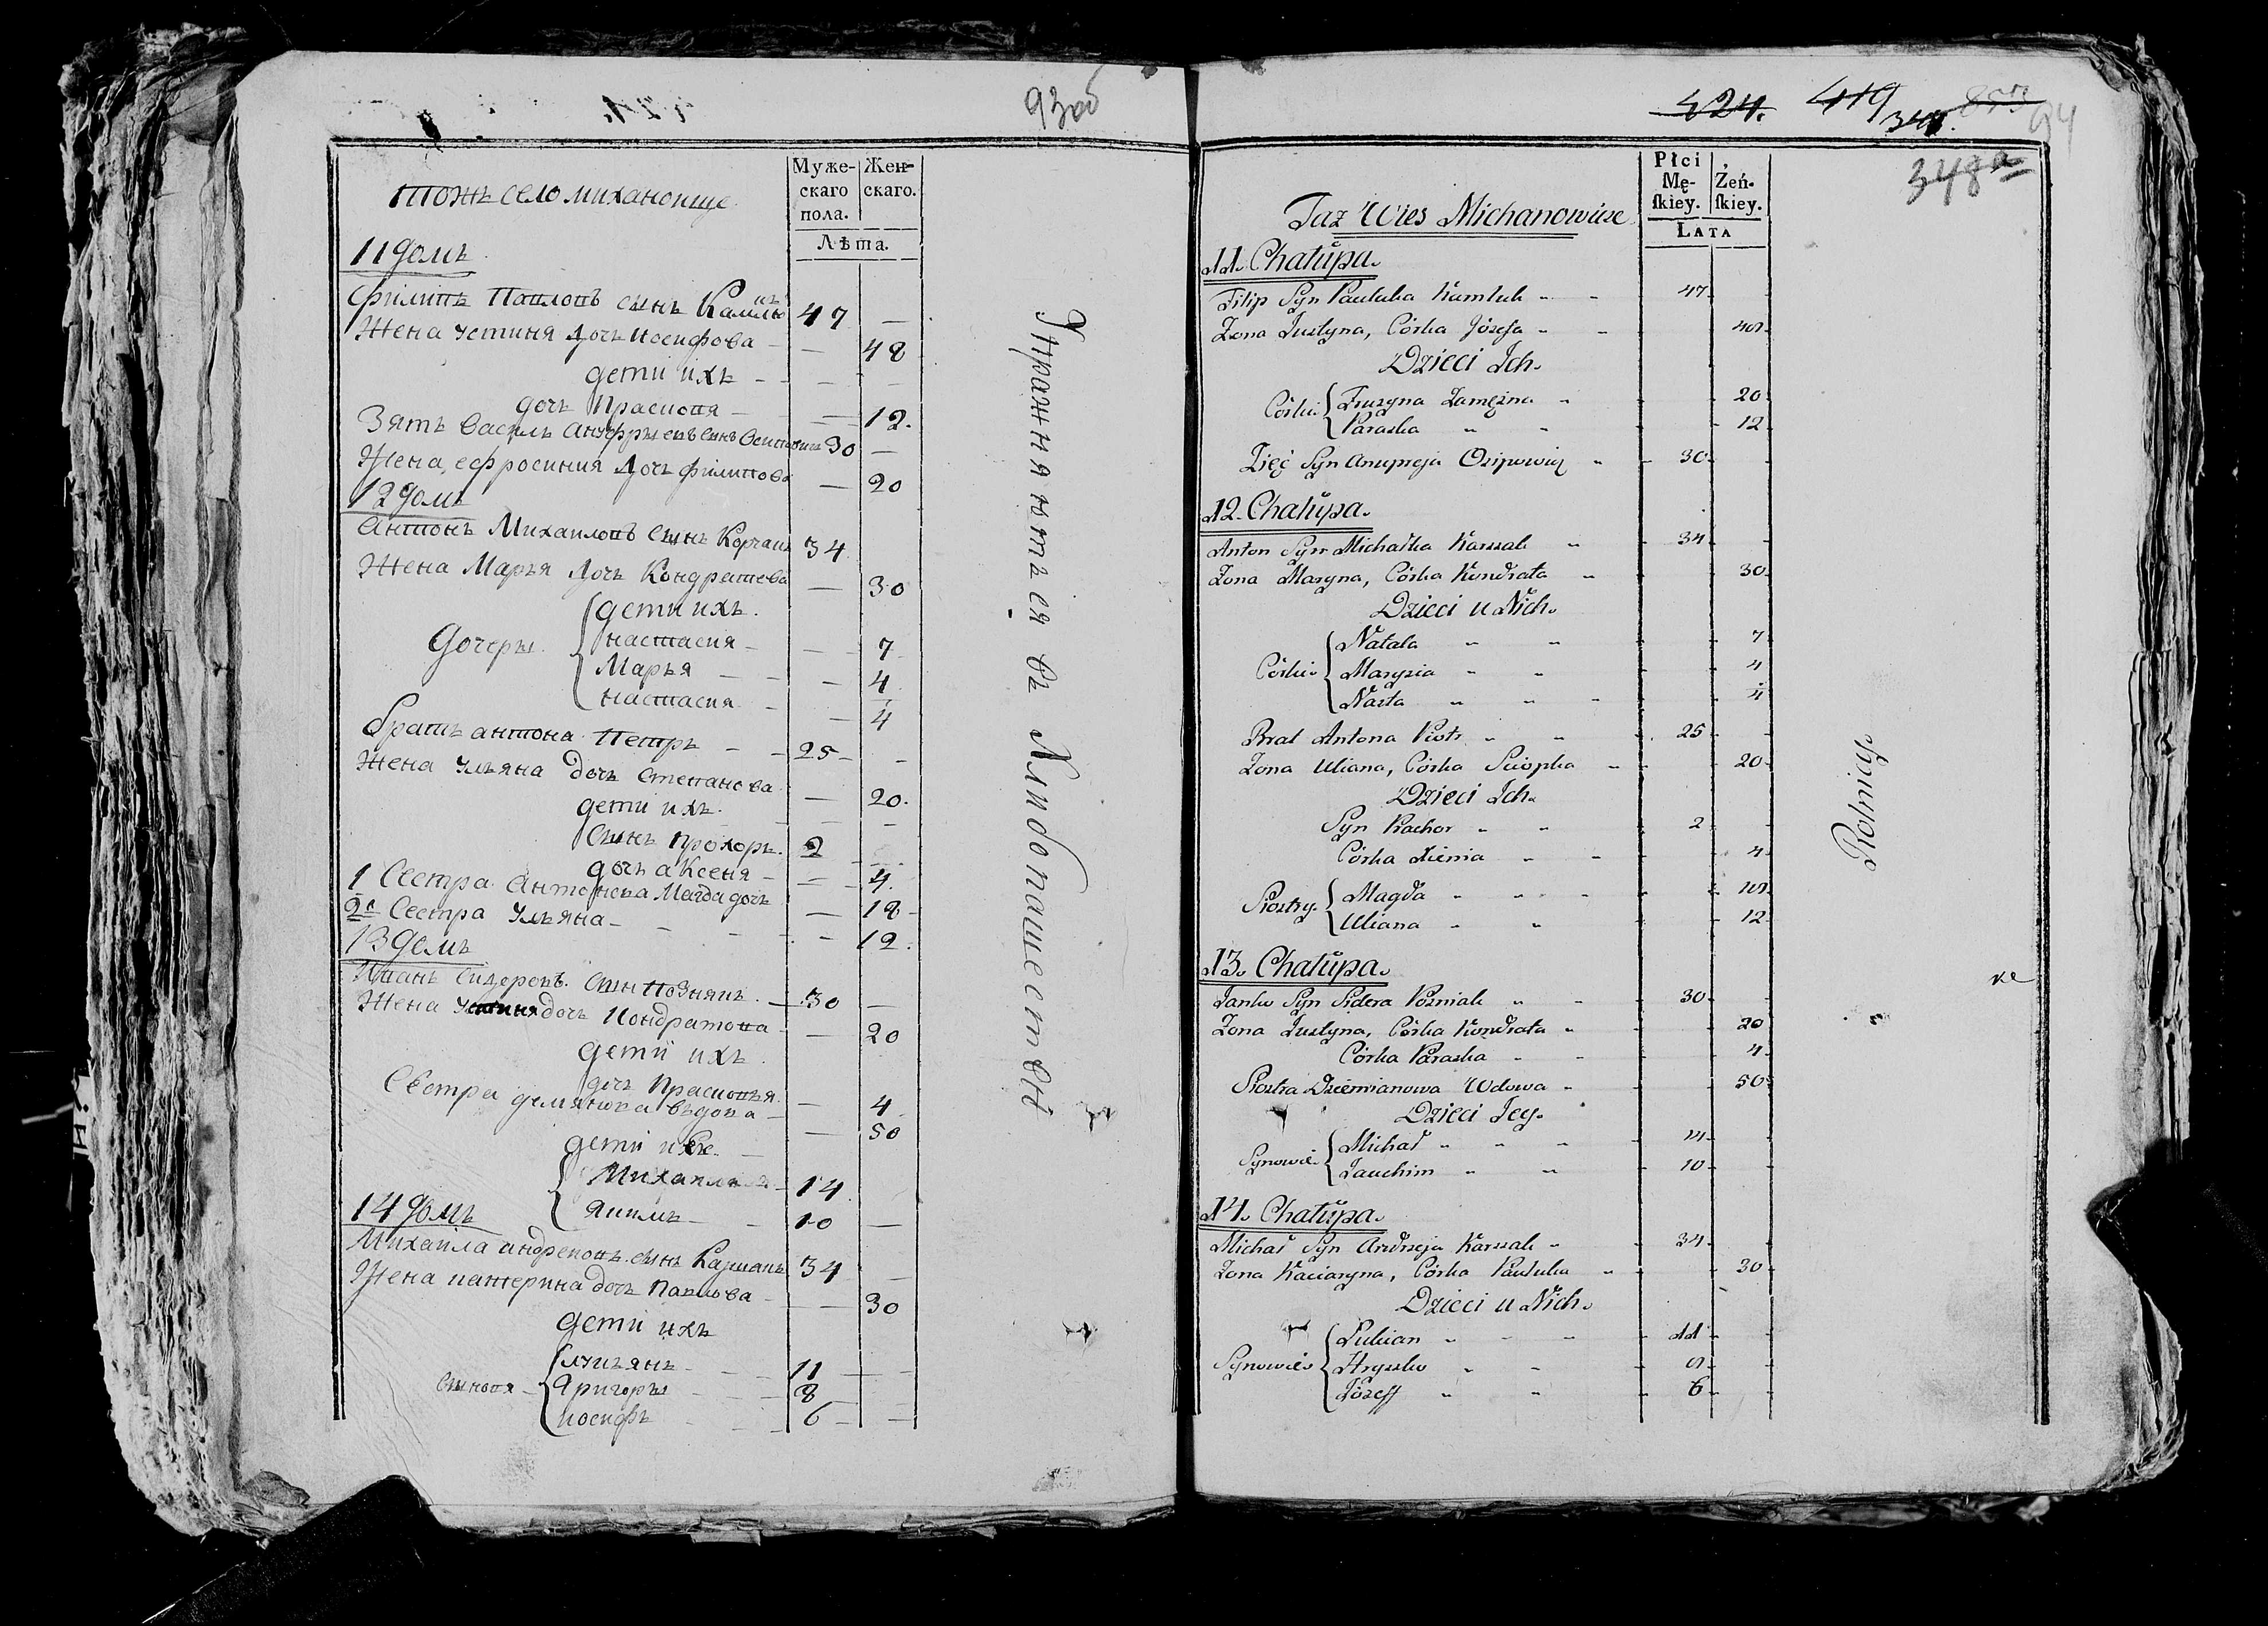 93об
Муже-
скаго
пола.
Жен-
скаго.
Лѣта.
тожъ село михановище
11 домъ
Филипъ Павловъ сынъ Камлю 47 —
Жена устиня дочъ иосифова — — 48
дети ихъ - - — —
дочъ Прасковя — — 12.
Зять Василь Ануфрыевъ сынъ 30 —
Жена, ефросиния дочъ филипова — 20
12 домъ
Антонъ Михаиловъ сынъ Корчакъ 34
Жена Марья дочъ Кондратева — 30
дети ихъ.
Дочеры
настасия — — 7
Марья — — — 4
настасия — — 4
братъ антона Петръ — — 25 — -
Жена ульяна дочъ степанова — 20.
дети ихъ. — —
сынъ прохоръ. 2
дочъ аксеня — — - 4.
1 Сестра Антонова Магда дочъ — 18 -
2я Сестра Ульяна - - - - — 12.
13 домъ
Иванъ Сидоровъ. сынъ Познякъ. — 30 —
Жена устиня дочъ Кондратова — — 20
дети ихъ.
дочъ Прасковья. — 4.
Сестра демянова вдова — — 50
дети ихъ. —
Михаила - 14
Якимъ — - 10 —
14 домъ
Михаила андреювъ сынъ Каршакъ 34 —
Жена катерина дочъ павлова — — 30
дети ихъ
сыновя
лукьянъ — - — 11 — —
Григоры — - — 8
иосифъ - - — 6 — —
Упражняютъся въ хлибопашествѣ
424. 419
94
348а
Płci
Mę-
ſkiey.
Żeń-
ſkiey.
Lata
Taż Wieś Michanowicze
11. Chałupa.
Filip Syn Pawluka Kamluk - - 47
Żona Justyna, Córka Józefa - - 48
Dzieci Ich.
Córki
Fruzyna Zamężna - - 20
Paraska - - - 12
Zięć Syn Anupreja Osipowicz - - 30 -
12. Chałupa.
Anton Syn Michałka Karszak - - 34 -
Żona Maryna, Córka Kondrata - - 30
Dzieci u Nich.
Córki
Natala - - - 7
Marysia - - - 4
Nasta - - - - 4
Brat Antona Piotr - - - 25 -
Żona Uliana, Córka Sciopka - - 20
Dzieci Ich.
Syn Prachor - - - 2 -
Córka Xienia - - - 4
Siostry.
Magda - - - - 18
Uliana - - - 12
13. Chałupa.
Janko Syn Sidora Pozniak - - - 30 -
Żona Justyna, Córka Kondrata - - 20
Córka Paraska - - - 4
Siostra Dziemianowa Wdowa - - 50
Dzieci Jey.
Synowie
Michał - - - - 14 -
Jauchim - - - 10 -
14. Chałupa.
Michał Syn Andrzeja Karszak - - 34 -
Żona Kaciaryna, Córka Pawluka - - 30
Dzieci u Nich.
Synowie
Lukian - - - - 11 -
Hryszko - - - 8 -
Józeff - - - 6 -
Rolnicy.